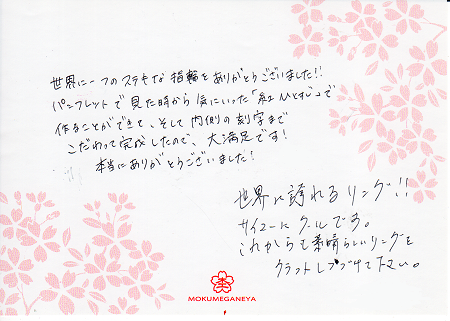 世界に一つのステキな指輪をありがとうございました!!
パンフレットで見た時から気にいった「紅ひとすじ」で
作ることができて、そして内側の刻字まで
こだわって完成したので、大満足です!
本当にありがとうございました!
世界に誇れるリング!!
サイコーにクールです。
これからも素晴らしいリングを
クラフトしつづけて下さい。
MOKUMEGANEYA